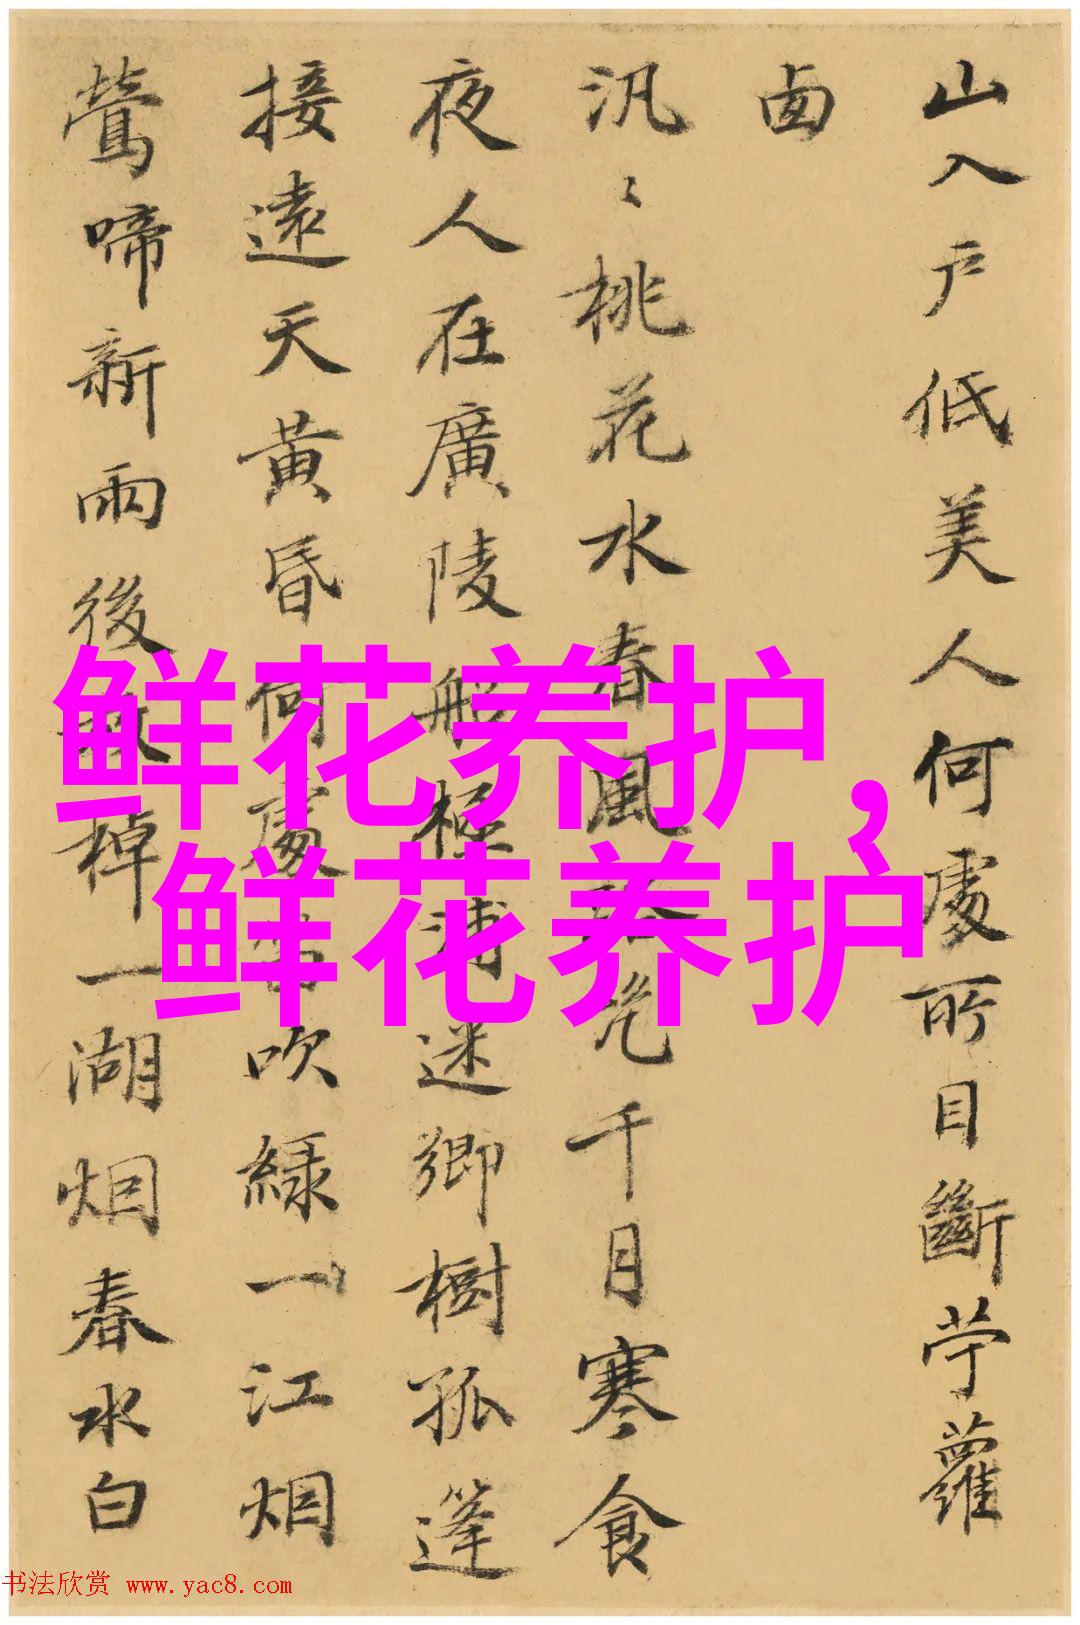 山入戶低美人何處所目斷苧蘿
西
汎〻桃花水春風千月寒食
夜人在廣陵船極浦迷鄉樹孤篷
接遠天黃昏何處吹綠一江烟
鶯啼新雨後棹一湖烟春水白
鲜花养护,
鲜花养护
书法欣赏 www.yac8.com